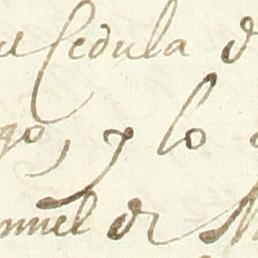 Cedula d
go, y lo
nuel de M